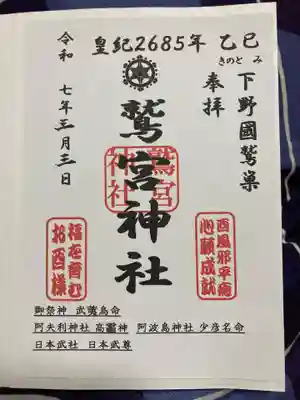 皇紀2685年 乙巳
きのと み
下野國鷲巣
奉拝
鷲宮神社
鷲宮神社
令和 七年三月三日
百風邪平癒
心願成就
福を育む
お酉様
御祭神 武夷鳥命
阿夫利神社 高龗神 阿波島神社 少彦名命
日本武社 日本武尊